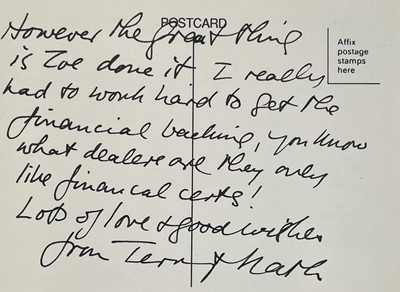 POSTCARD
Affix
postage
stamps
here
However the great thing
is I've done it I really
had to work hard to get the
financial backing, you know
what dealers are they only
like financal certs!
Lots of love & good wishes
from Terry &